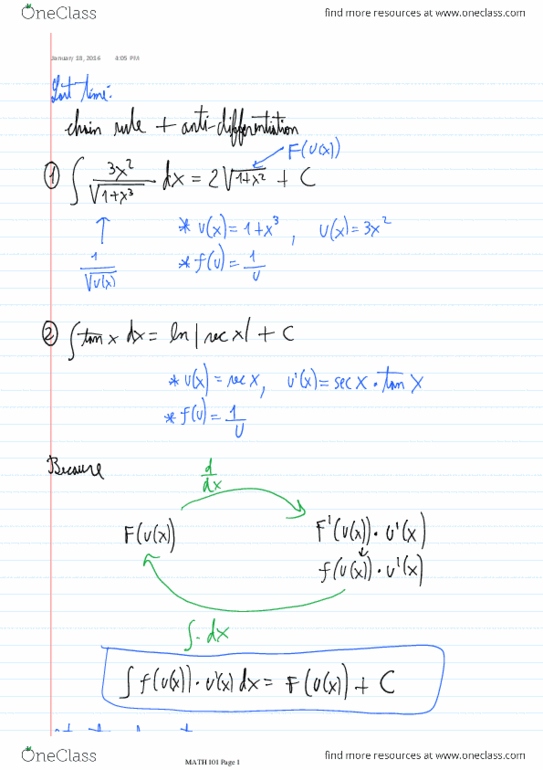 OneClass
find more resources at www.oneclass.com
January 18, 2016 4:05 PM
Last time:
chain rule + anti-differentiation
① ∫ 3x²/√(1+x³) dx = 2√(1+x²) + C ← F(u(x))
↑ * u(x) = 1+x³, u(x) = 3x²
1/√u(x) * f(u) = 1/u
② ∫ tan x dx = ln|sec x| + C
* u(x) = sec x, u'(x) = sec x · tan x
* f(u) = 1/u
Because
d/dx
F(u(x)) F'(u(x)) · u'(x)
f(u(x)) · u'(x)
∫ · dx
∫ f(u(x)) · u'(x) dx = F(u(x)) + C
OneClass
MATH 101 Page 1
find more resources at www.oneclass.com